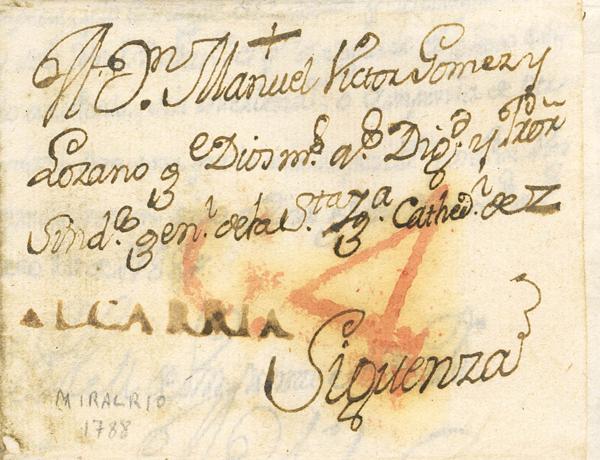 A Dn Manuel Victor Gomez y
Lozano g e Dios ms. a.s Dig.d y
Sind.o gen.l de la S.ta Yg.a Cathed.l de Z
ALCARRIA
4
Siguenza
MIRALRIO
1788